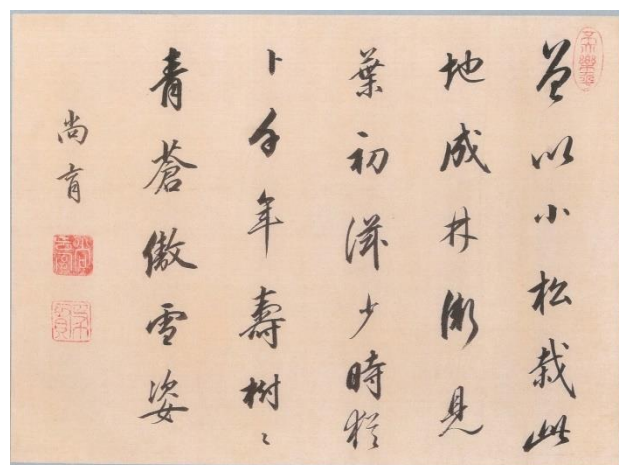 曾以小松栽此
地成林漸見
葉初滋少時猶
卜千年壽樹〻
青蒼傲雪姿
尚育